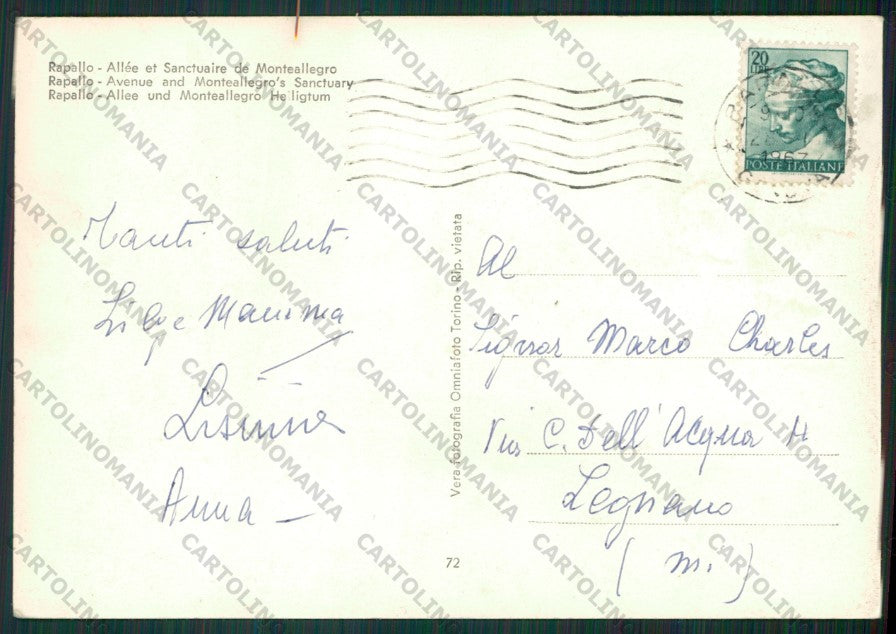 Rapallo - Allée et Sanctuaire de Monteallegro
Rapallo - Avenue and Monteallegro's Sanctuary
Rapallo - Allee und Monteallegro Heiligtum
20
LIRE
1967
POSTE ITALIANE
Tanti saluti
e Mamma
Anna -
Vera fotografia Omniafoto Torino - Rip. vietata
72
Al
Signor Marco Charles
Via C. Dell' Acqua
Legnano
( M. )
CARTOLINOMANIA